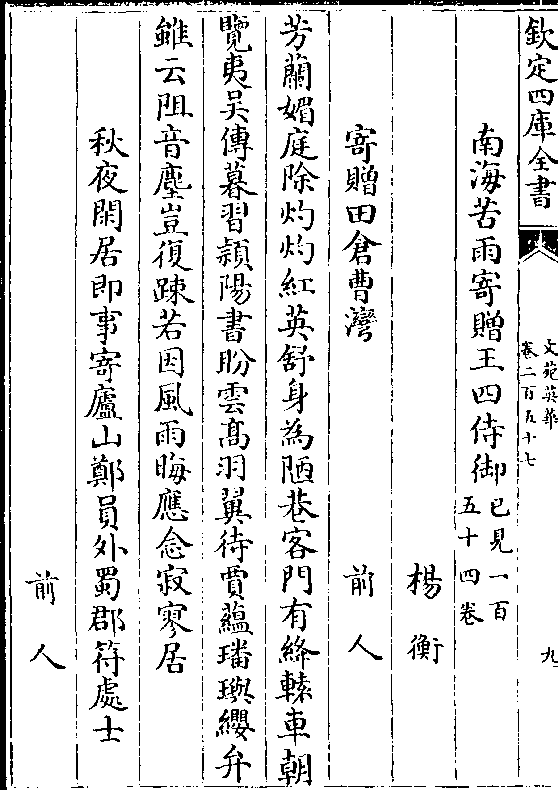 欽定四庫全書
文苑英華
卷二百五十七
九
南海苦雨寄贈王四侍御已見一百
五十四卷
楊衡
寄贈田倉曹灣
前人
芳蘭媚庭除灼灼紅英舒身為陋巷客門有絳轅車朝
覽夷吳傳暮習潁陽書盼雲高羽翼待賈蘊璠璵纓弁
雖云阻音塵豈復踈若因風雨晦應念寂寥居
秋夜閑居即事寄廬山鄭員外蜀郡符處士
前人